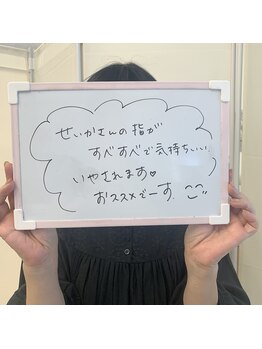 せいかさんの指が
すべすべで気持ちいい
いやされます♡
おススメでーす